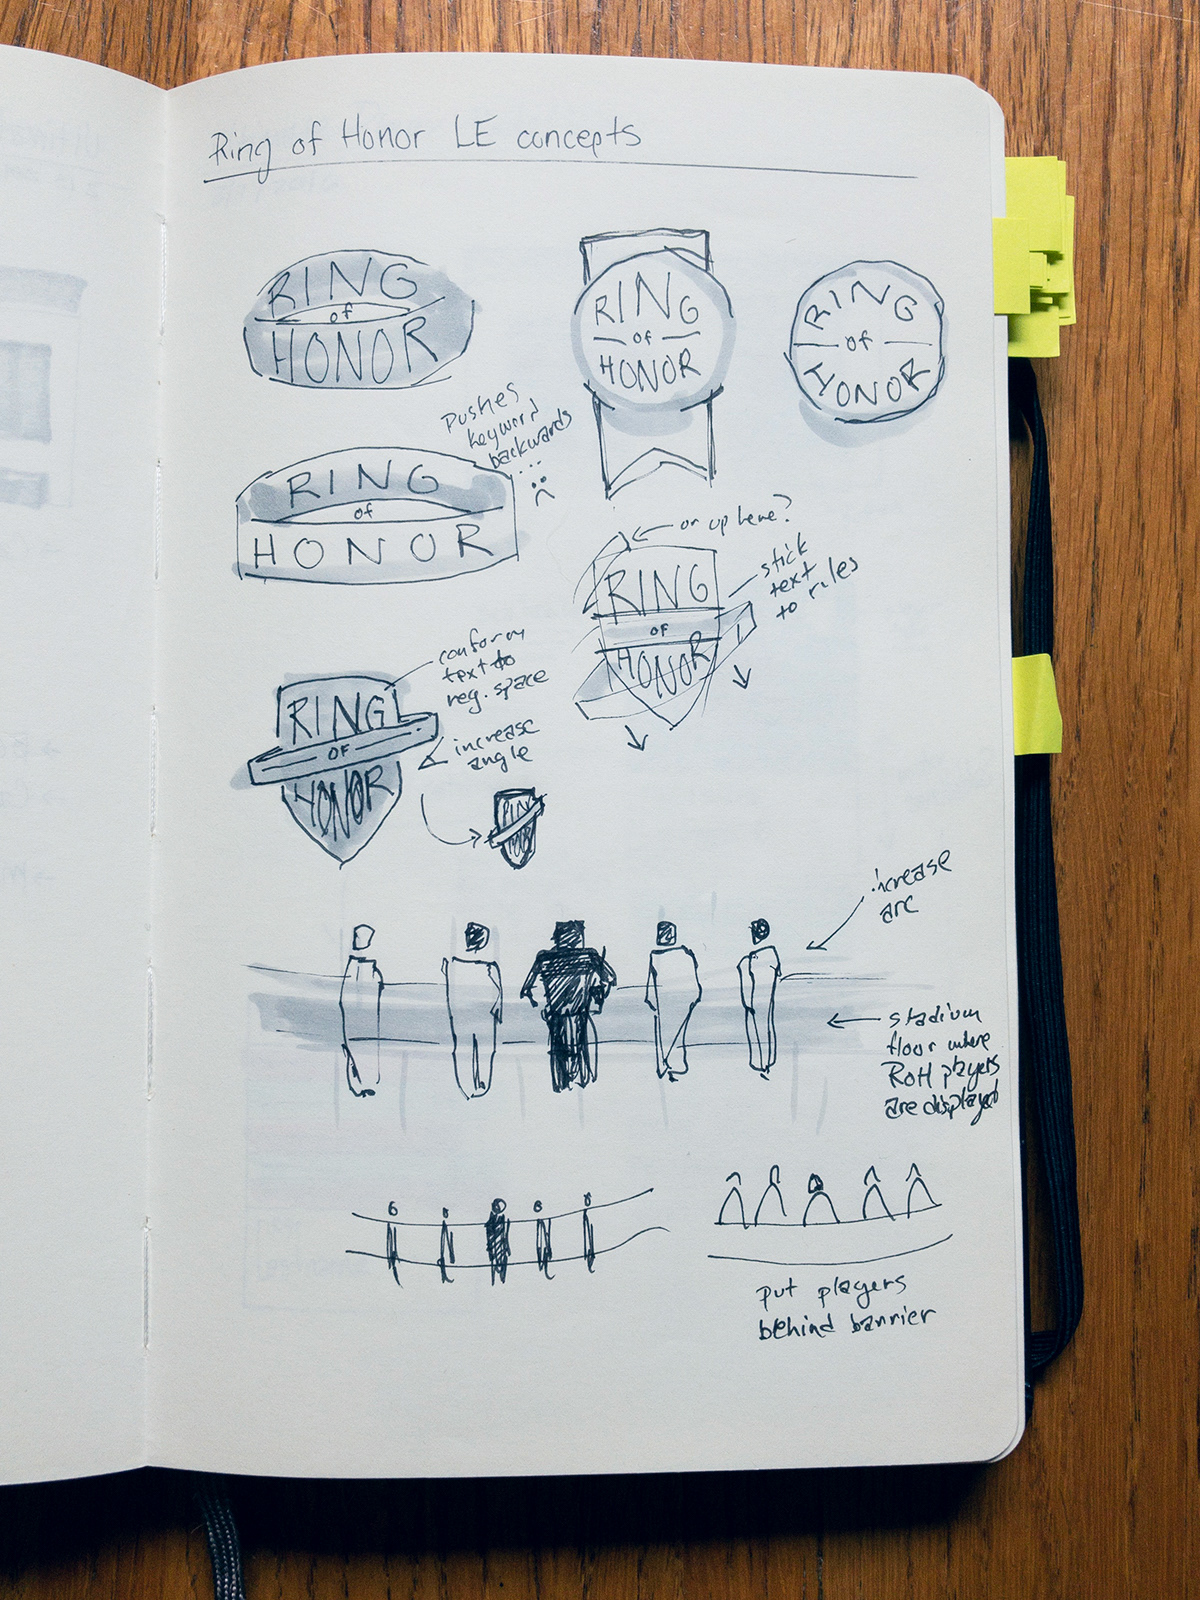 Ring of Honor LE concepts
RING
of
HONOR
RING
of
HONOR
RING
of
HONOR
pushes
keyword
backwards
RING
of
HONOR
or up here?
stick
text
to rules
RING
OF
HONOR
conform
text to
neg. space
RING
OF
HONOR
increase
angle
RING
increase
arc
stadium
floor where
RoH players
are displayed
put players
behind barrier